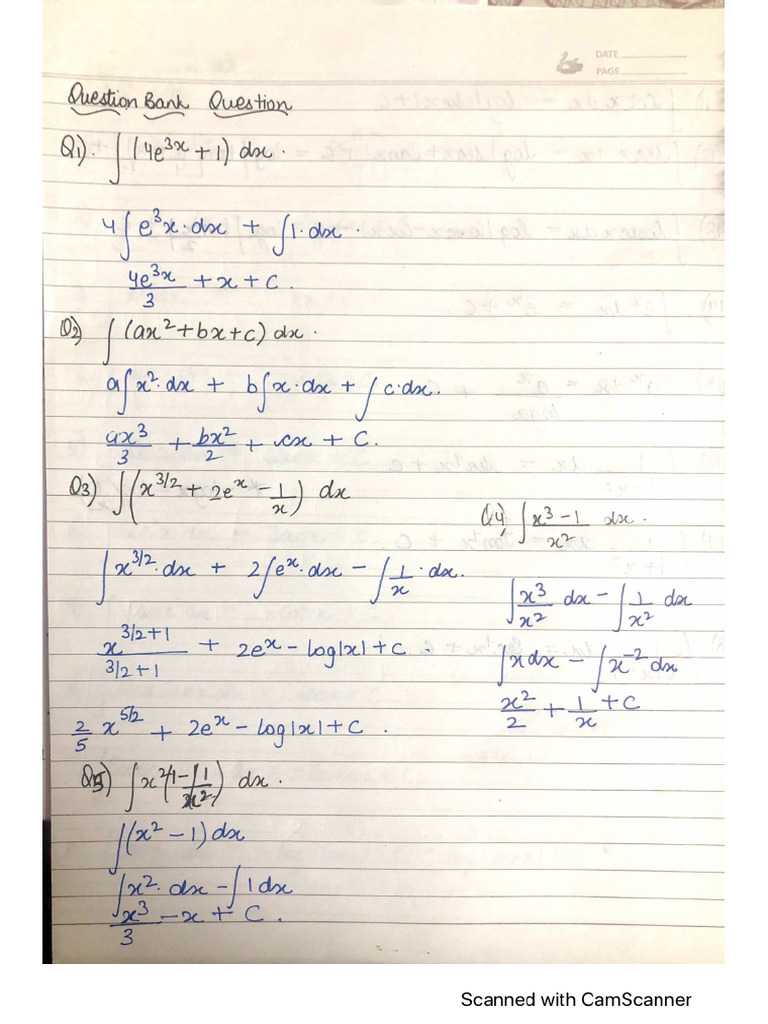 DATE
PAGE
Question Bank Question
Q1). ∫(4e^{3x} + 1) dx.
4∫e^3x·dx + ∫1·dx.
4e^{3x}/3 + x + C.
Q2) ∫(ax² + bx + c) dx.
a∫x²·dx + b∫x·dx + ∫c·dx.
ax³/3 + bx²/2 + cx + C.
Q3) ∫(x^{3/2} + 2e^x - 1/x) dx
∫x^{3/2}·dx + 2∫e^x·dx - ∫1/x·dx.
x^{3/2+1}/(3/2+1) + 2e^x - log|x| + C.
2/5 x^{5/2} + 2e^x - log|x| + C.
Q4) ∫(x³-1)/x² dx.
∫x³/x² dx - ∫1/x² dx
∫x dx - ∫x^{-2} dx
x²/2 + 1/x + C
Q5) ∫x²(1 - 1/x²) dx.
∫(x² - 1) dx
∫x²·dx - ∫1dx
x³/3 - x + C.
Scanned with CamScanner